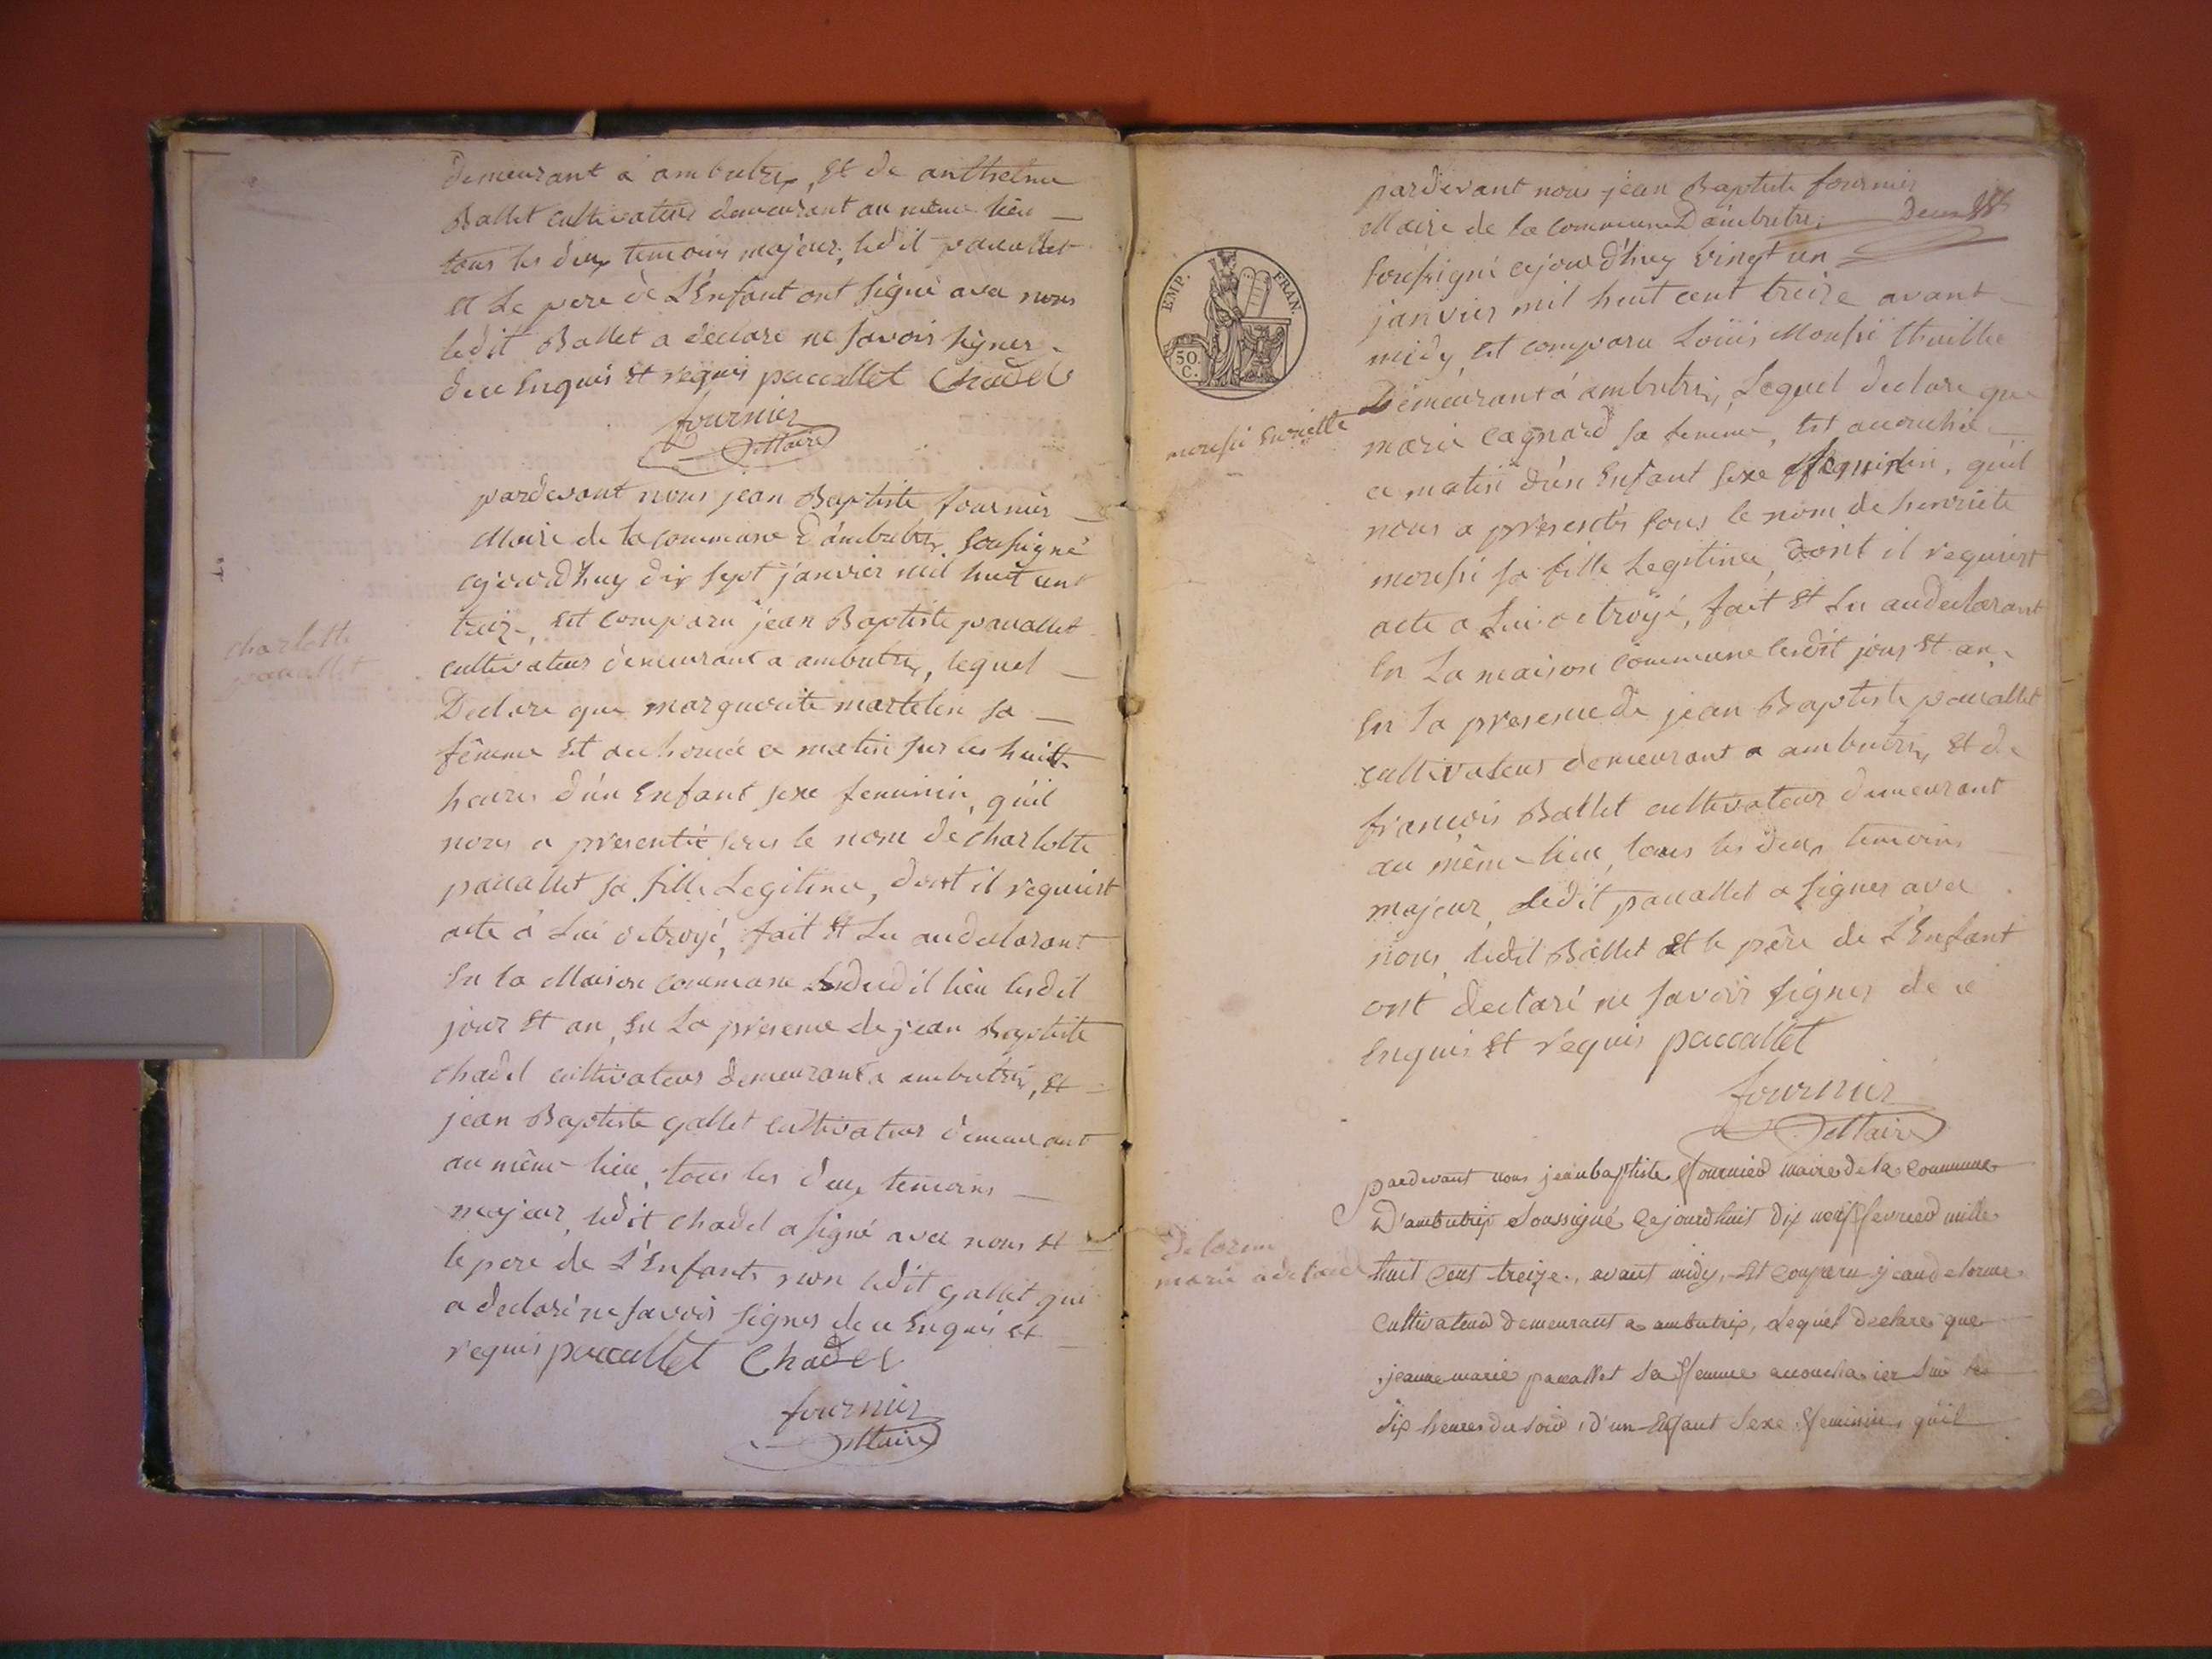 demeurant a ambutrix, Et de anthelme
Ballet cultivateur demeurant au même lieu
tous les deux temoins majeur, ledit paccallet
et Le pere de L'Enfant ont signé avec nous
ledit Ballet a declaré ne savoir signer
de ce Enquis Et requis paccallet Chadel
fournier
Maire
charlotte
paccallet
pardevant nous jean Baptiste fournier
Maire de la commune d'ambutrix soussigné
cejourdhuy dix sept janvier mil huit cent
treize, Est comparu jean Baptiste paccallet
cultivateur demeurant a ambutrix, lequel
Declare que marguerite martelin sa
fêmme Est acchouée ce matin sur les huitt
heures d'un Enfant sexe feminin, qu'il
nous a presenté sous le nom de charlotte
paccallet sa fille Legitime, dont il requiert
acte à Lui octroyé, fait Et Lu au declarant
En la Maison commune dudit lieu lesdit
jour Et an, En La presence de jean Baptiste
chadel cultivateur demeurant a ambutrix, Et
jean Baptiste gallet cultivateur demeurant
au même lieu, tous les deux temoins
majeur, ledit chadel a signé avec nous Et
le pere de L'Enfant, non ledit gallet qui
a declaré ne savoir signer de ce Enquis Et
requis paccallet Chadel
fournier
Maire
EMP. FRAN.
50
C.
pardevant nous jean Baptiste fournier
Maire de la commune D'ambutrix
soussigné cejourd'huy vingt un
janvier mil huit cent treize avant
midy, Est comparu Louis
Demeurant à ambutrix, Lequel declare que
marie cagnard sa femme, Est accouchée
ce matin d'un Enfant sexe feminin, qu'il
nous a presentés sous le nom de henriete
sa fille Legitime, dont il requiert
acte a Lui octroyé, fait Et Lu au declarant
En La maison commune lesdit jour Et an,
En la presence de jean Baptiste paccallet
cultivateur demeurant a ambutrix, Et de
francois Ballet cultivateur demeurant
au même lieu, tous les deux temoins
majeur, ledit paccallet a signer avec
nous, ledit Ballet Et le père de L'Enfant
ont declaré ne savoir signer de ce
Enquis Et requis paccallet
fournier
Maire
Delorme
marie adelaide
pardevant nous jean baptiste fournier maire de la commune
D'ambutrix Soussigné Cejourdhuit dix neuf fevrier mille
huit Cent treize, avant midy, Est Comparu jean delorme
Cultivateur demeurant a ambutrix, Lequel declare que
jeanne marie paccallet Sa femme accoucha ier Sur les
Six heures du Soir, d'un Enfant Sexe feminin, qu'il